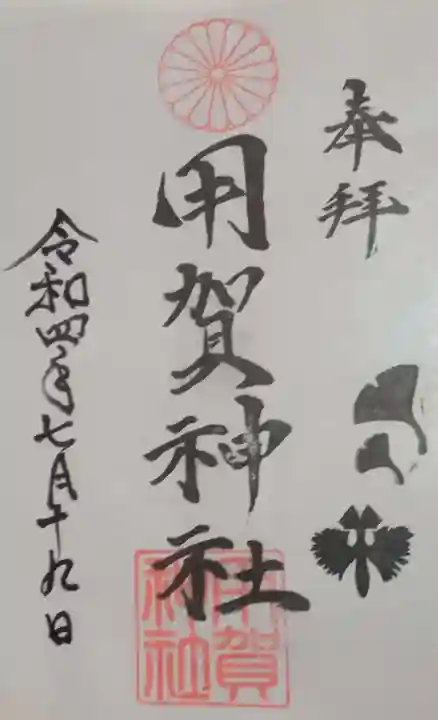 奉拝
用賀神社
用賀神社
令和四年七月十九日